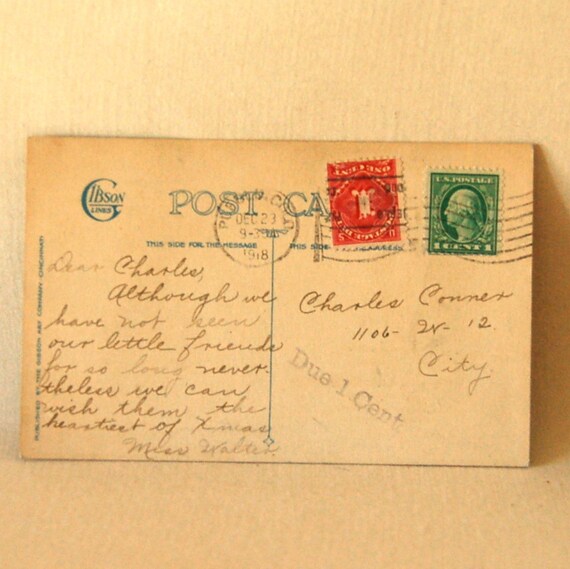 GIBSON
LINES
POST CA
U.S. POSTAGE
1 CENT 1
DEC 23
9-
1918
THIS SIDE FOR THE MESSAGE
THIS SIDE
Dear Charles,
Although we
have not seen
our little friends
for so long never-
theless we can
wish them the
heartiest of Xmas
Miss Walter.
Charles Conner
1106- N- 12.
City.
Due 1 Cent
PUBLISHED BY THE GIBSON ART COMPANY, CINCINNATI